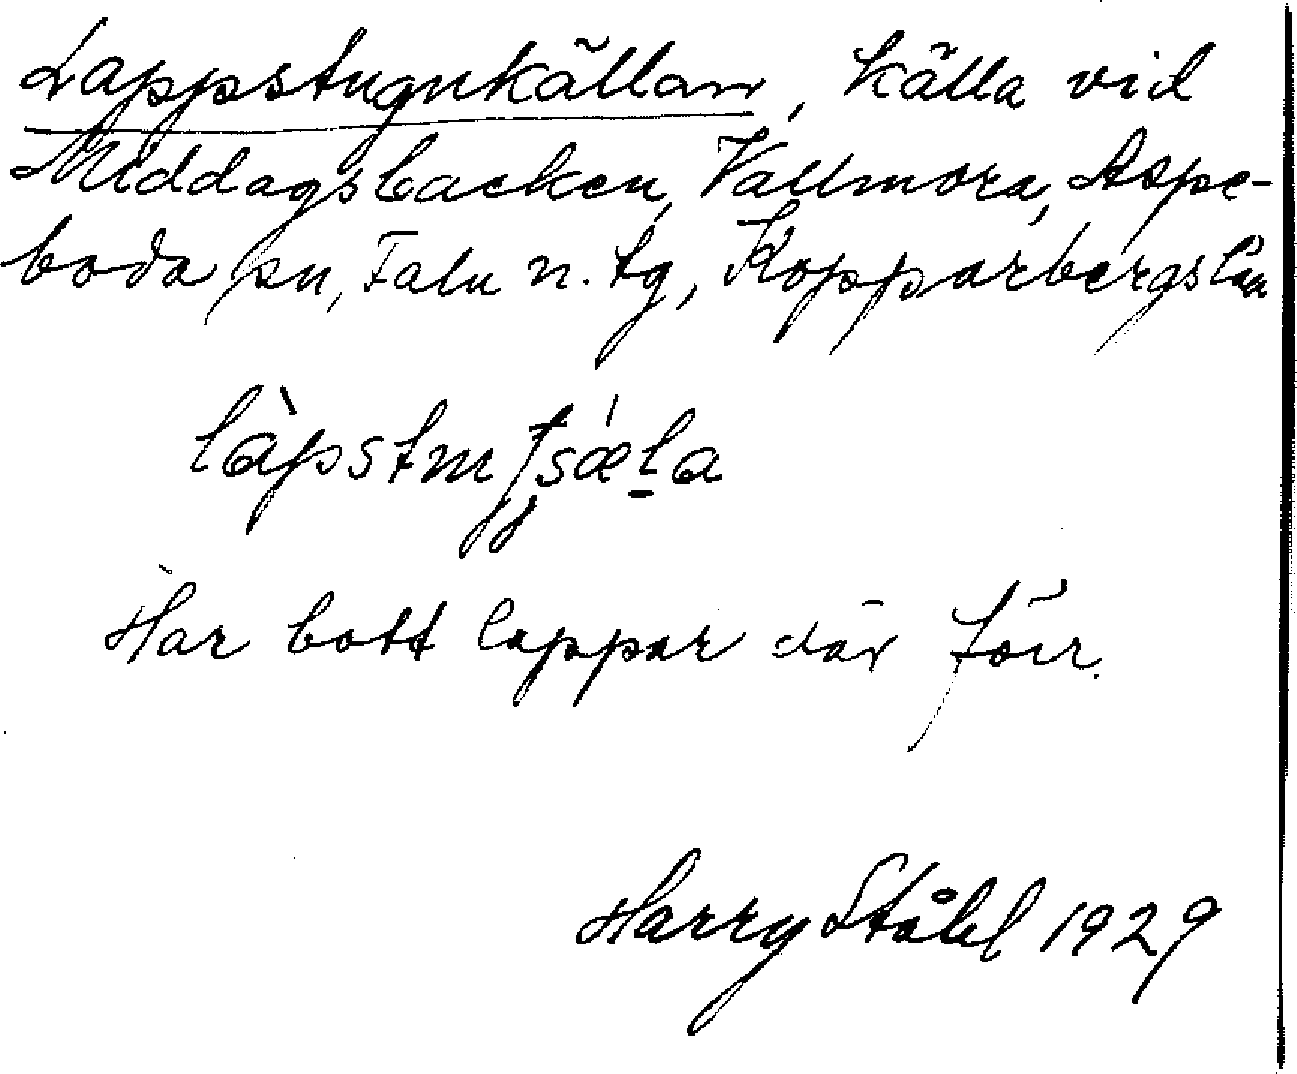 Lappstugukällan, källa vid
Middagsbacken, Vallmora, Aspe-
boda sn, Falu n. tg, Kopparbergs län
Har bott lappar där förr.
Harry Ståhl 1929